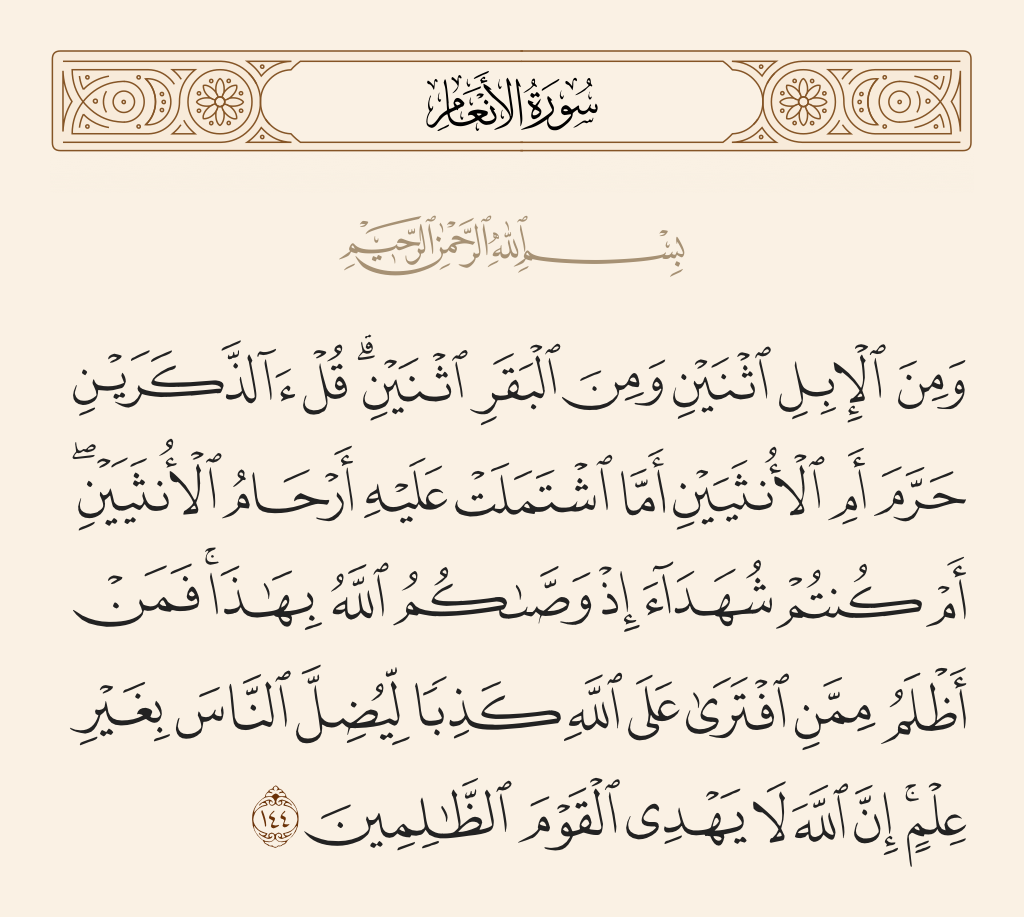 سُورَةُ الأَنْعَامِ
بِسْمِ اللَّهِ الرَّحْمَٰنِ الرَّحِيمِ
وَمِنَ ٱلْإِبِلِ ٱثْنَيْنِ وَمِنَ ٱلْبَقَرِ ٱثْنَيْنِ ۗ قُلْ ءَآلذَّكَرَيْنِ
حَرَّمَ أَمِ ٱلْأُنثَيَيْنِ أَمَّا ٱشْتَمَلَتْ عَلَيْهِ أَرْحَامُ ٱلْأُنثَيَيْنِ ۖ
أَمْ كُنتُمْ شُهَدَآءَ إِذْ وَصَّىٰكُمُ ٱللَّهُ بِهَٰذَا ۚ فَمَنْ
أَظْلَمُ مِمَّنِ ٱفْتَرَىٰ عَلَى ٱللَّهِ كَذِبًا لِّيُضِلَّ ٱلنَّاسَ بِغَيْرِ
عِلْمٍ ۚ إِنَّ ٱللَّهَ لَا يَهْدِى ٱلْقَوْمَ ٱلظَّٰلِمِينَ ١٤٤